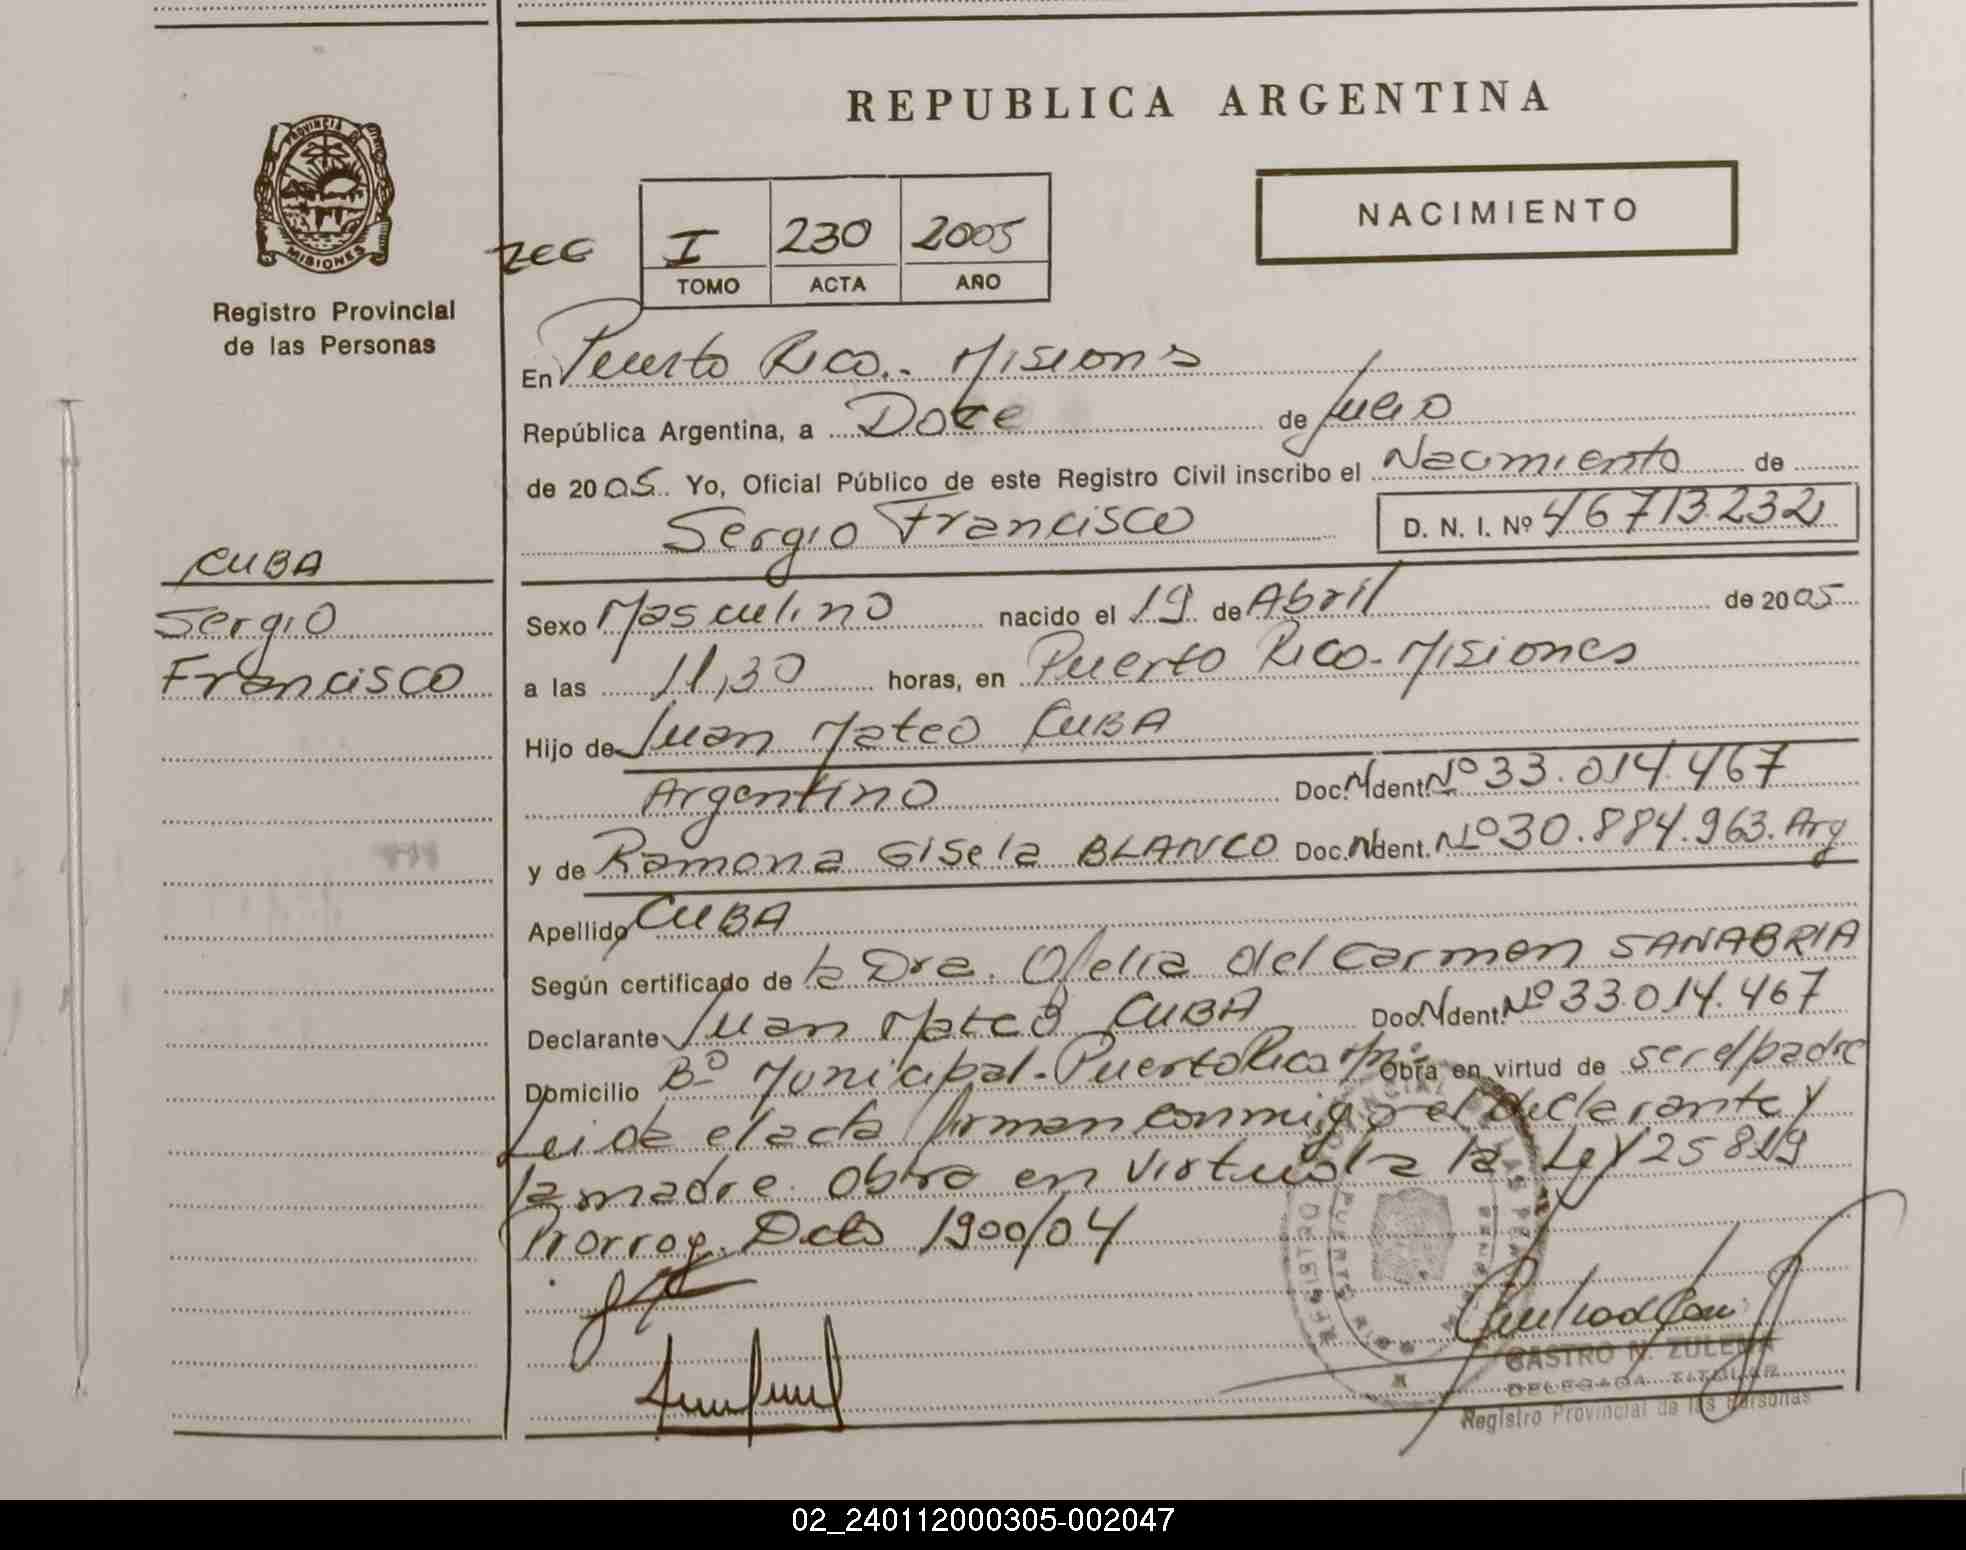 REPUBLICA ARGENTINA
PROVINCIA DE
MISIONES
Registro Provincial
de las Personas
NACIMIENTO
I 230 2005
TOMO ACTA AÑO
En Puerto Rico.. Misions
República Argentina, a Doce de Julio
de 2005. Yo, Oficial Público de este Registro Civil inscribo el Nacimiento de
Sergio Francisco D. N. I. Nº 46713232
CUBA
Sergio
Francisco
Sexo Masculino nacido el 19 de Abril de 2005
a las 11,30 horas, en Puerto Rico-Misiones
Hijo de Juan Mateo CUBA
Argentino Doc. N Ident. Nº 33.014.467
y de Ramona Gisela BLANCO Doc. N Ident. Nº 30.884.963. Arg
Apellido CUBA
Según certificado de la Dra. Ofelia del Carmen SANABRIA
Declarante Juan Mateo CUBA Doc. N Ident. Nº 33.014.467
Domicilio Bº Municipal-Puerto Rico Obra en virtud de ser el padre
Leida el acta firman conmigo el declarante y
la madre. Obra en virtud a la Ley 25819
Prorrog. Dcto 1900/04
CASTRO N. ZULEMA
DELEGADA TITULAR
Registro Provincial de las Personas
02_240112000305-002047